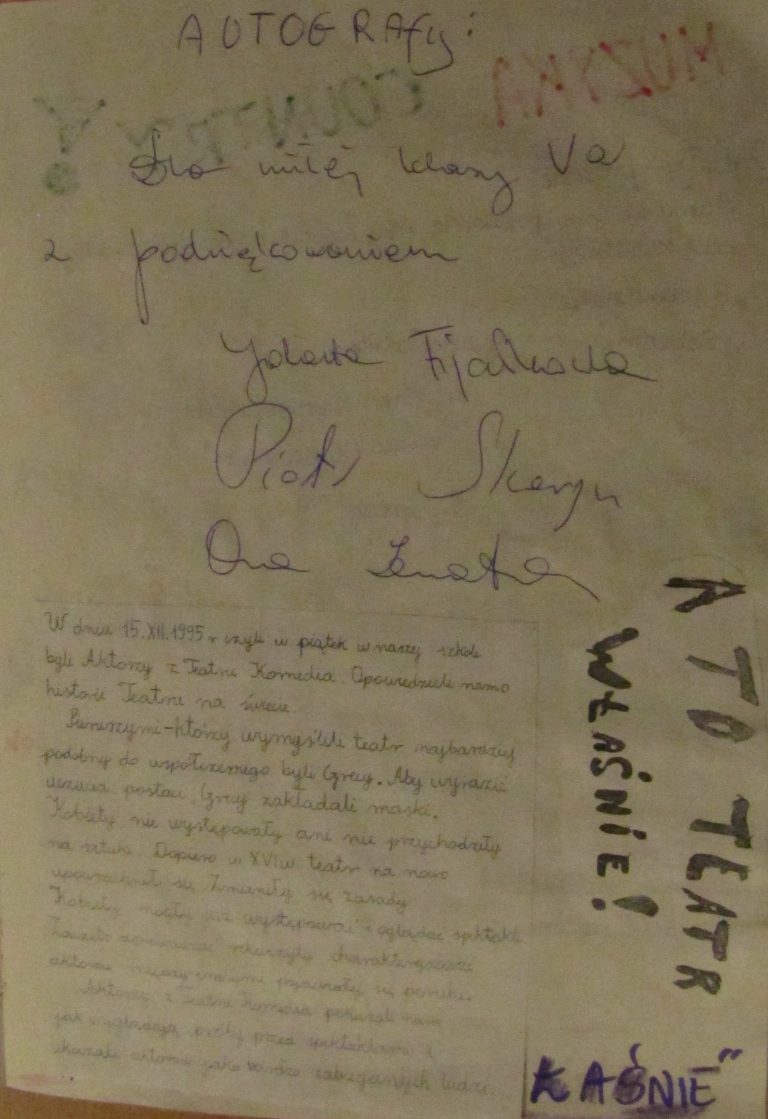 AUTOGRAfy:
MUZYKA COUNTRY!
Dla miłej klasy Va
z podziękowaniem
Jolanta Fijałkowska
Piotr Skarga
W dniu 15.XII.1995 r czyli w piątek w naszej szkole
byli Aktorzy z Teatru Komedia. Opowiedzieli namo
historii Teatru na świecie.
Pierwszymi-którzy wymyślili teatr najbardziej
podobny do współczesnego byli Grecy. Aby wyrazić
uczucia postaci, Grecy zakładali maski.
Kobiety nie występowały ani nie przychodziły
na sztuki. Dopiero w XVIw teatr na nowo
upowszechnił się. Zmieniły się zasady
Kobiety mogły już występować i oglądać spektakle
Zaczęto charakteryzować
aktorów między innymi pojawiły się peruki.
Aktorzy z Teatru Komedia pokazali nam
jak wyglądają próby przed spektaklami i
ukazali aktorów jako bardzo zabieganych ludzi.
A TO TEATR
WŁAŚNIE!
ŁAŚNIE"